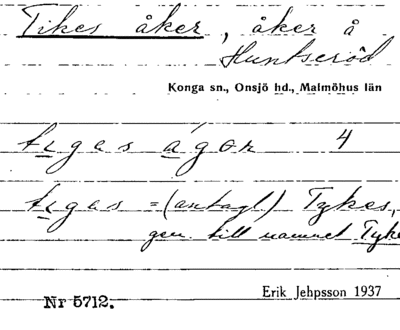 Tikes åker, åker å
Huntseröd
Konga sn., Onsjö hd., Malmöhus län
tigas ågor 4
tigas = (antagl.) Tykes,
gen. till namnet Tyke
Erik Jehpsson 1937
Nr 5712.